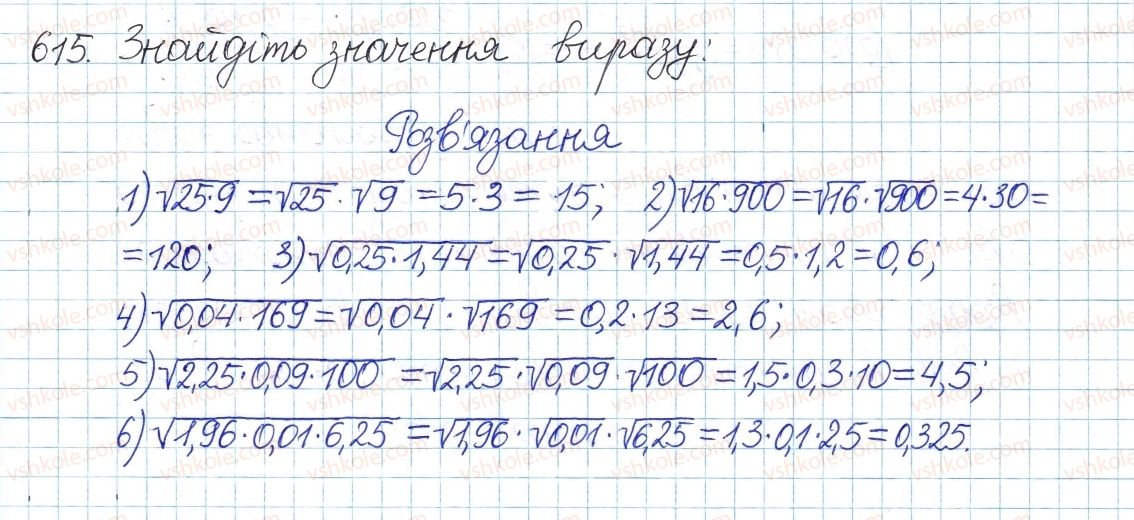 615. Знайдіть значення виразу:
Розв'язання
1) √25·9 = √25 · √9 = 5·3 = 15; 2) √16·900 = √16 · √900 = 4·30 =
= 120; 3) √0,25·1,44 = √0,25 · √1,44 = 0,5·1,2 = 0,6;
4) √0,04·169 = √0,04 · √169 = 0,2·13 = 2,6;
5) √2,25·0,09·100 = √2,25 · √0,09 · √100 = 1,5·0,3·10 = 4,5;
6) √1,96·0,01·6,25 = √1,96 · √0,01 · √6,25 = 1,3·0,1·2,5 = 0,325.